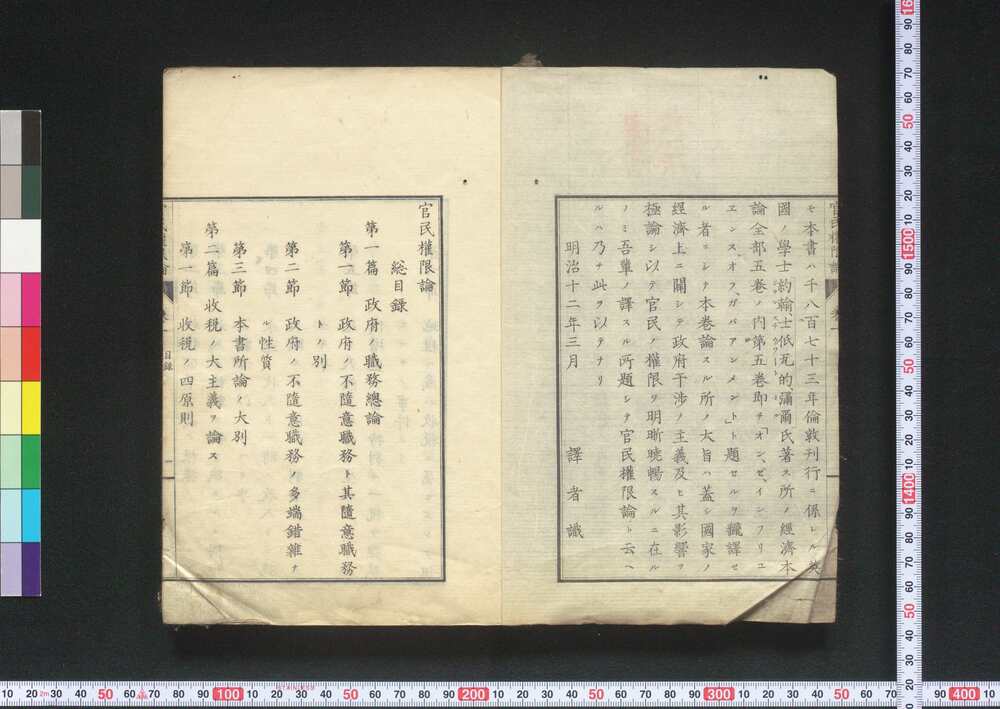 モ本書ハ千八百七十三年倫敦刊行ニ係レル英
國ノ學士約翰士低瓦的彌爾氏著ス所ノ經濟本
論全部五卷ノ内第五卷即チ「オン、ゼ、インフリユ
エンス、オフ、ガバアンメント」ト題セルヲ飜譯セ
ル者ニシテ本卷論スル所ノ大旨ハ蓋シ國家ノ
經濟上ニ關シテ政府干渉ノ主義及ヒ其影響ヲ
極論シ以テ官民ノ權限ヲ明晰曉暢スルニ在ル
ノミ吾輩ノ譯スル所題シテ官民權限論ト云ヘ
ルハ乃ナ此ヲ以テナリ
明治十二年三月 譯者識
官民權限論
総目録
第一篇 政府ノ職務總論
第一節 政府ノ不隨意職務ト其隨意職務
トノ別
第二節 政府ノ不隨意職務ノ多端錯雜ナ
ル性質
第三節 本書所論ノ大別
第二篇 收税ノ大主義ヲ論ス
第一節 收税ノ四原則
目錄